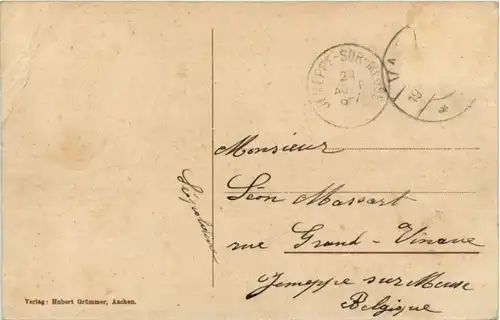 JEMEPPE-SUR-MEUSE
24
19
Monsieur
Léon Massart
rue Grand-Vinave
Jemeppe sur Meuse
Belgique
Léopoldine
Verlag: Hubert Grümmer, Aachen.